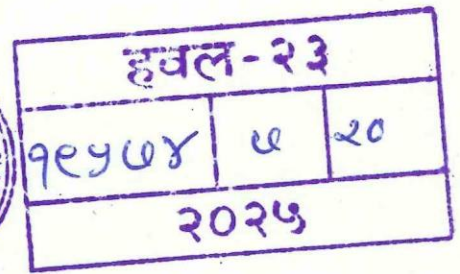 हवल-२३
१९५७४ ७ २०
२०२५